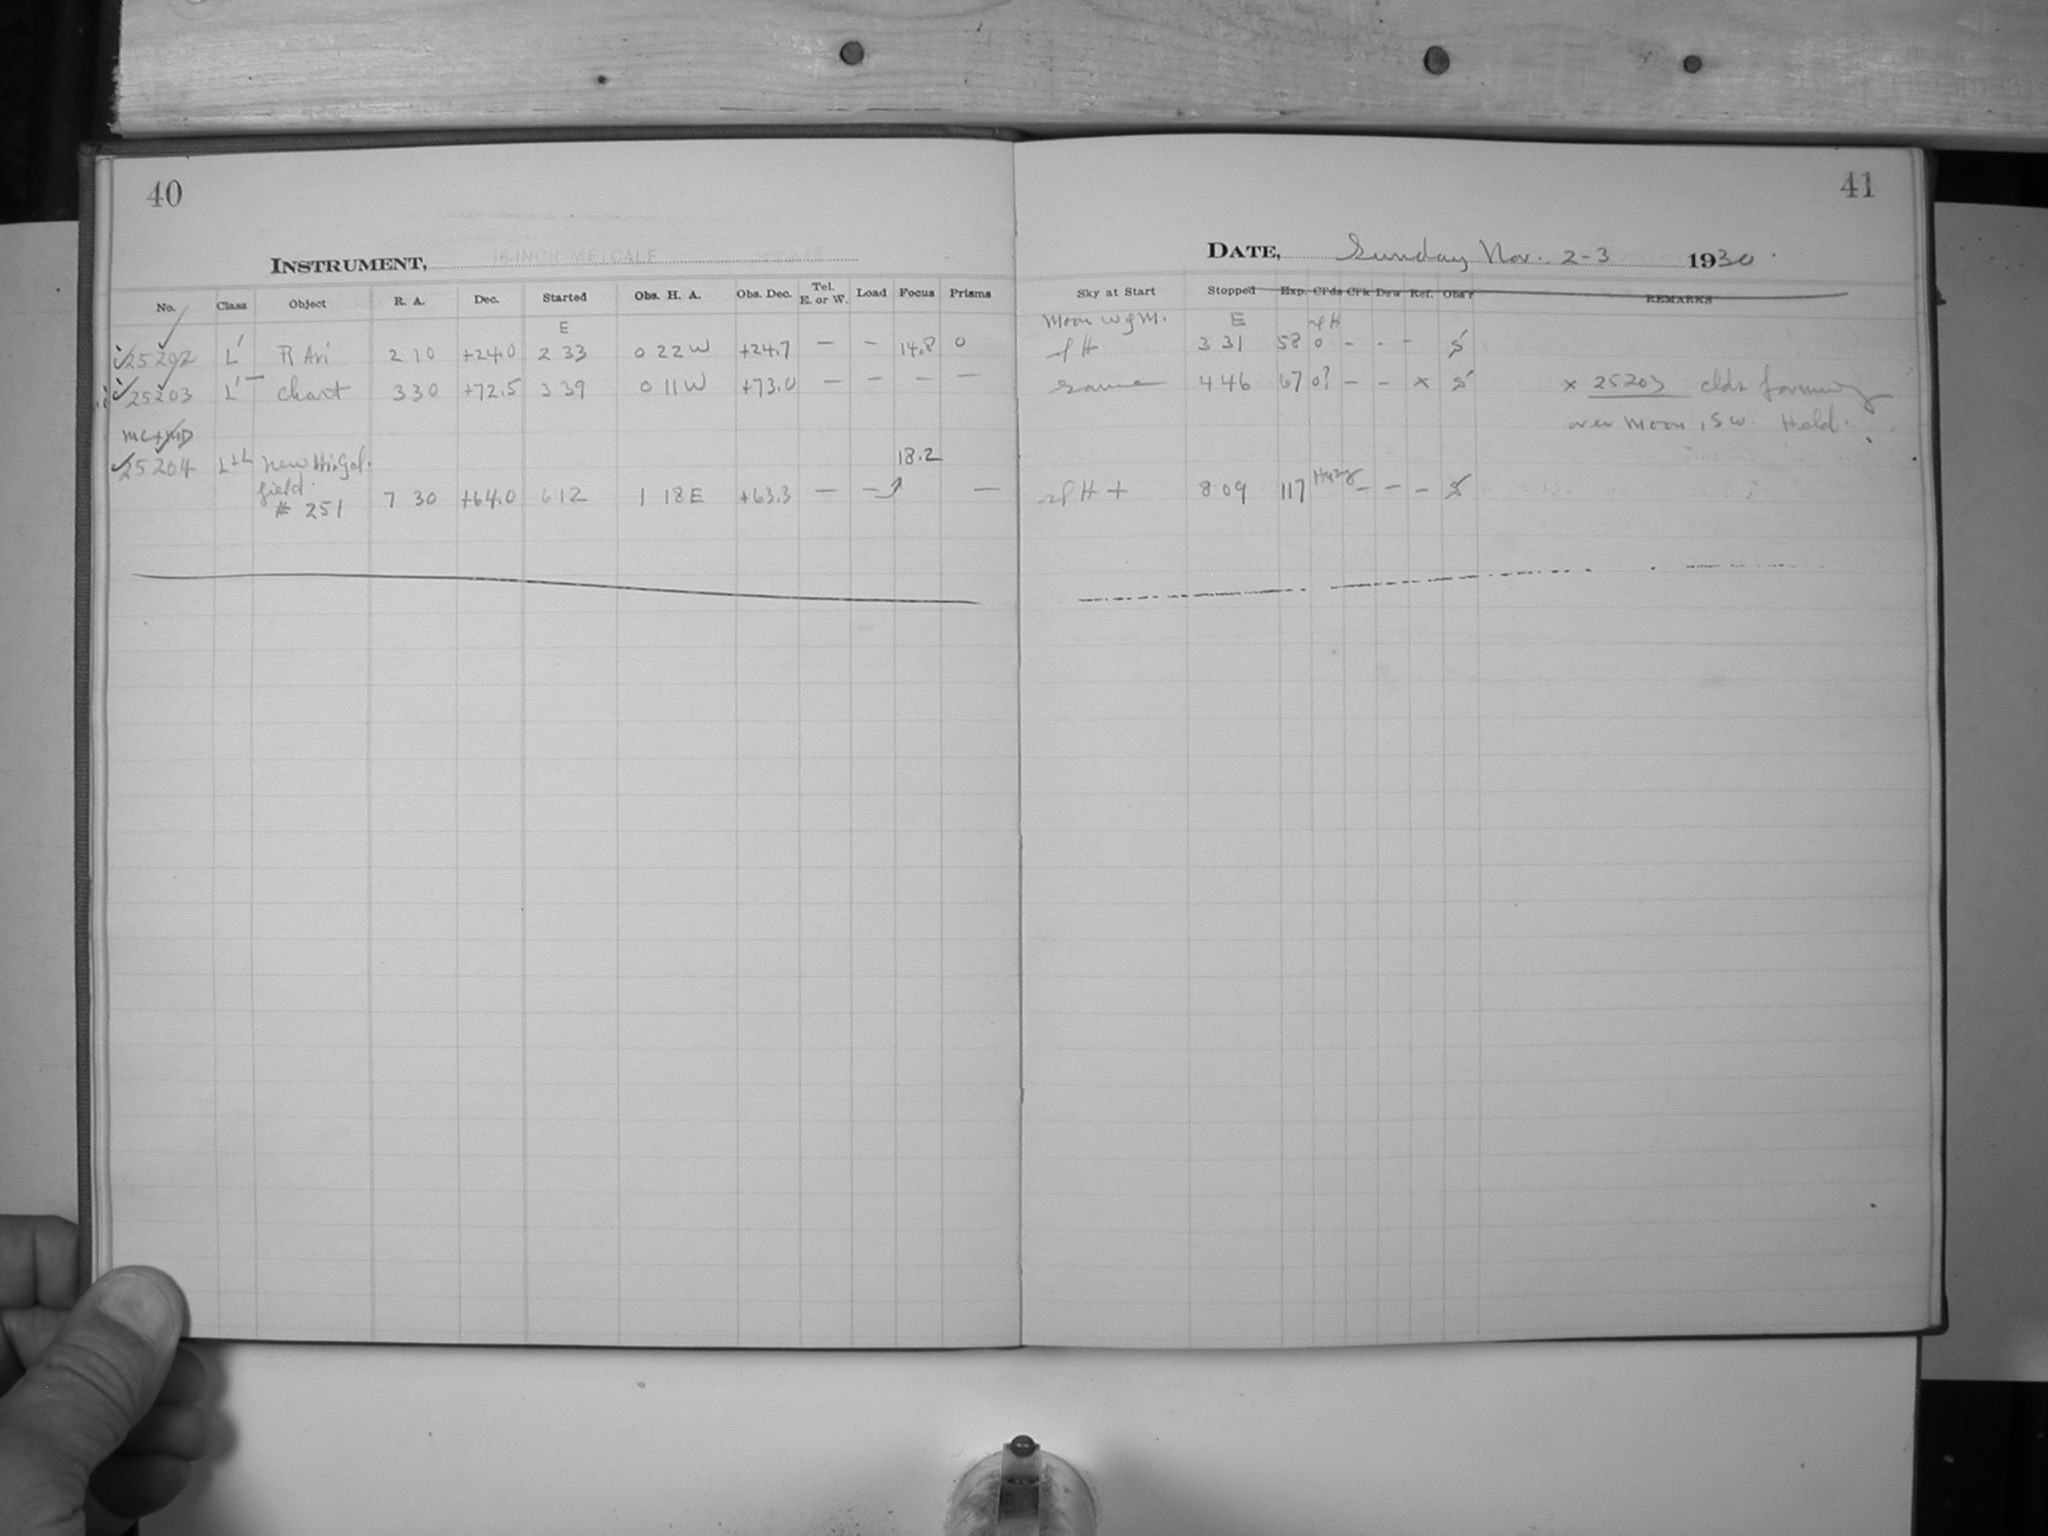 40
INSTRUMENT, 16-INCH METCALF
No. Class Object R. A. Dec. Started Obs. H. A. Obs. Dec. Tel. E. or W. Load Focus Prisms
E
25202 L' R Ari 2 10 +24.0 2 33 0 22 W +24.7 — – 14.8 0
25203 L' – Chart 3 30 +72.5 3 39 0 11 W +73.0 — – – —
MC+MD
25204 L+L New Gal. 18.2
field
# 251 7 30 +64.0 6 12 1 18 E +63.3 — – —
41
DATE, Sunday Nov. 2-3 1930.
Sky at Start Stopped Exp. Cl'ds Cl'k Dew Ref. Obs'r REMARKS
Moon W of M. E H
H 3 31 58 0 - - - S
same 4 46 67 0? – – x S x 25203 clds forming
over Moon, SW. Held.
H + 8 09 117 Hazy – – – S